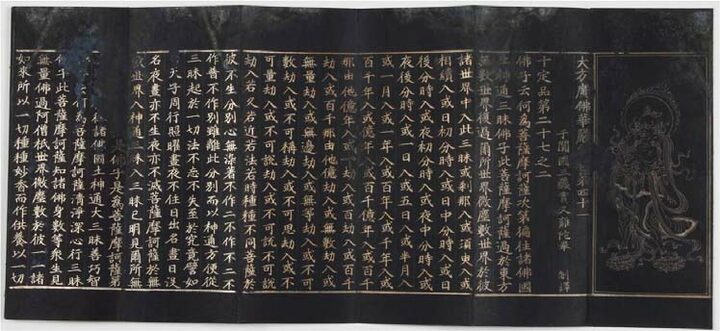 大方廣佛華嚴 第四十一
于闐國三藏實叉難陀奉 制譯
十定品第二十七之二
佛子云何為菩薩摩訶薩次第徧往諸佛國
土神通三昧佛子此菩薩摩訶薩過於東方
無數世界復過爾所世界微塵數世界於彼
諸世界中入此三昧或剎那入或須臾入或
相續入或日初分時入或日中分時入或日
後分時入或夜初分時入或夜中分時入或
夜後分時入或一日入或五日入或半月入
或一月入或一年入或百年入或千年入或
百千年入或億年入或百千億年入或百千
那由他億年入或一劫入或百劫入或百千
劫入或百千那由他億劫入或無數劫入或
無量劫入或無邊劫入或無等劫入或不可
數劫入或不可稱劫入或不可思劫入或不
可量劫入或不可說劫入或不可說不可說
劫入若久若近若法若時種種不同菩薩於
彼不生分別心無染著不作二不作不二不
作普不作別雖離此分別而以神通方便從
三昧起於一切法不忘不失至於究竟譬如
天子周行照曜晝夜不住日出名晝日沒
名夜晝亦不生夜亦不滅菩薩摩訶薩於無
數世界入神通三昧入三昧已明見爾所無
是佛子是為菩薩摩訶薩第
往諸佛國土神通大三昧善巧智
為菩薩摩訶薩清淨深心行三昧
佛子此菩薩摩訶薩知諸佛身數等眾生見
無量佛過阿僧祇世界微塵數於彼一一諸
如來所以一切種種妙香而作供養以一切